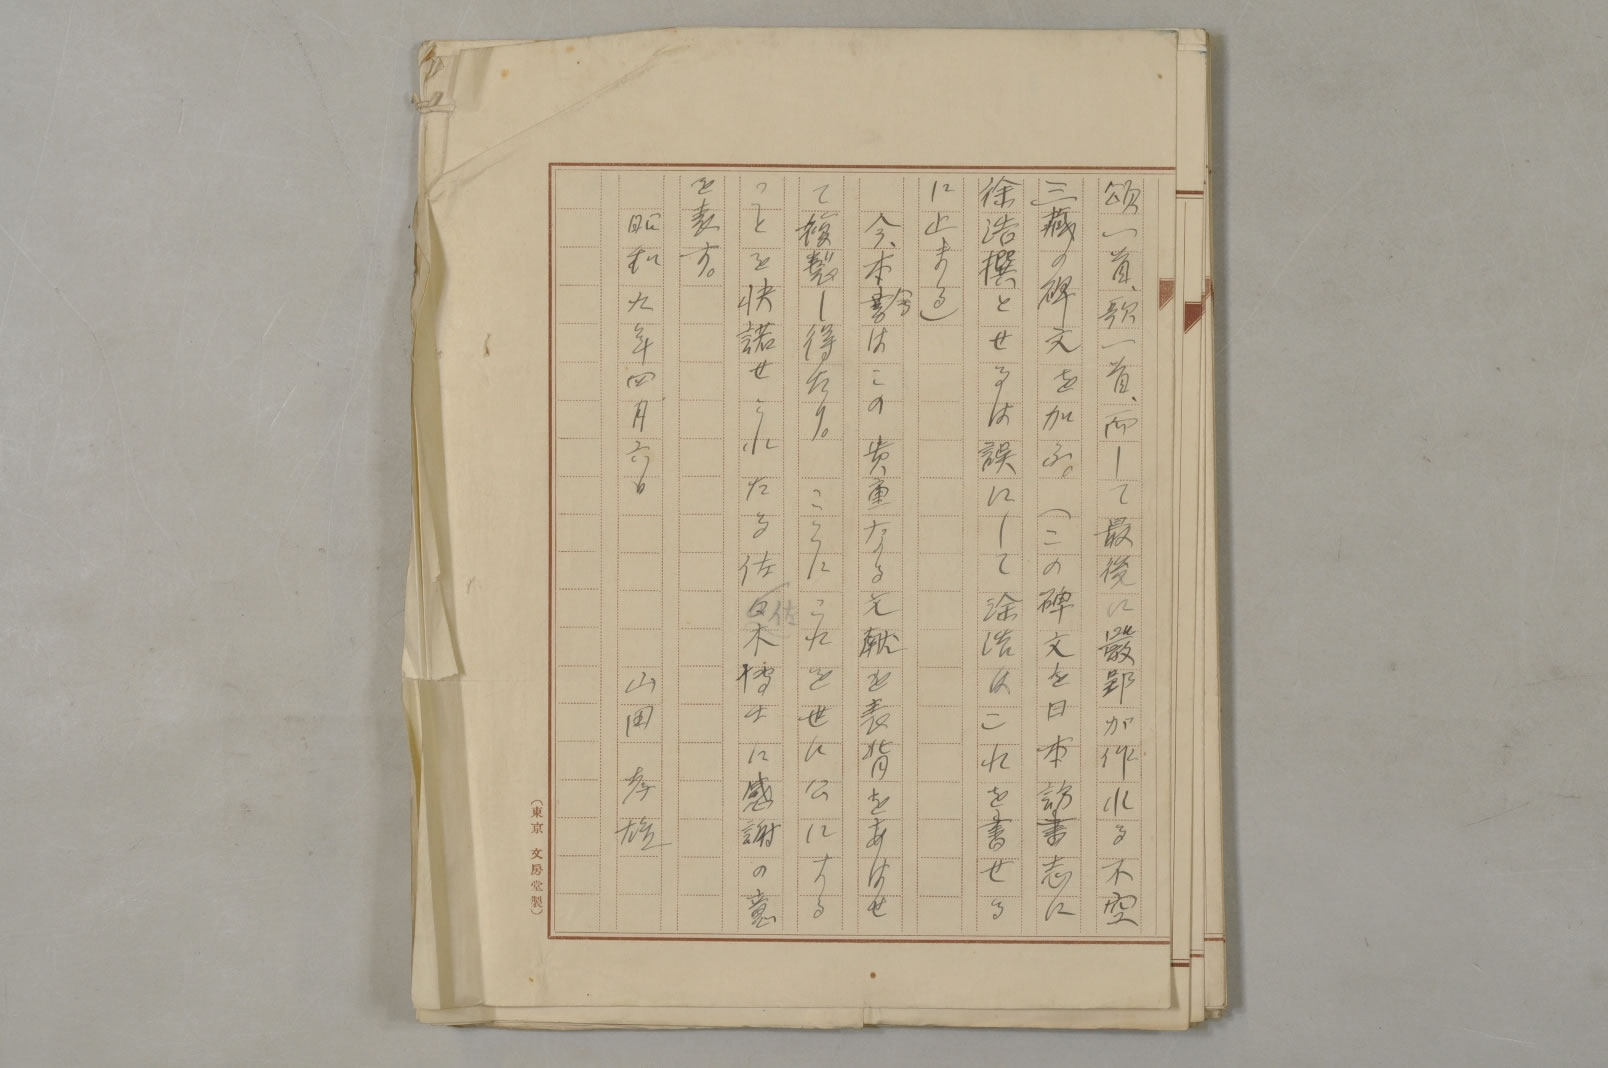 頌一首、歌一首、而して最後に嚴郢が作れる不空
三藏の碑文を加ふ。(この碑文を日本訪書志に
徐浩撰とせるは誤にして徐浩はこれを書せる
に止まる)
今、本會はこの貴重なる文献を表背をあはせ
て複製し得たり。こゝにこれを世に公にする
ことを快諾せられたる佐佐木博士に感謝の意
を表す。
昭和九年四月六日 山田孝雄
(東京 文房堂製)